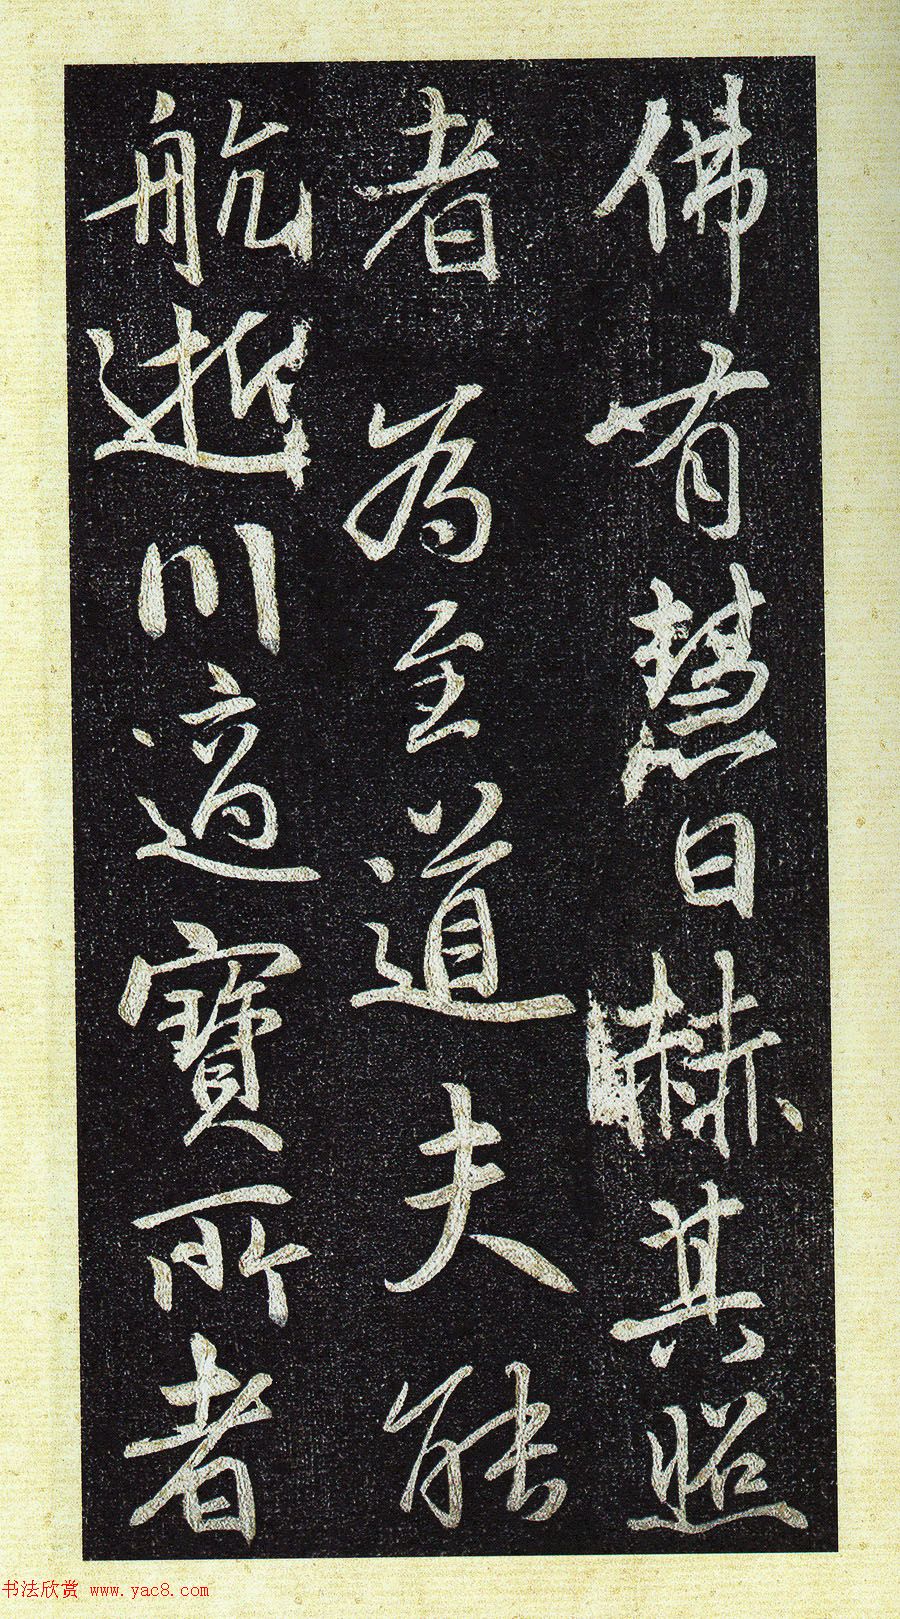 佛有慧日赫其照
者為至道夫能
航逝川適寶所者
书法欣赏 www.yac8.com